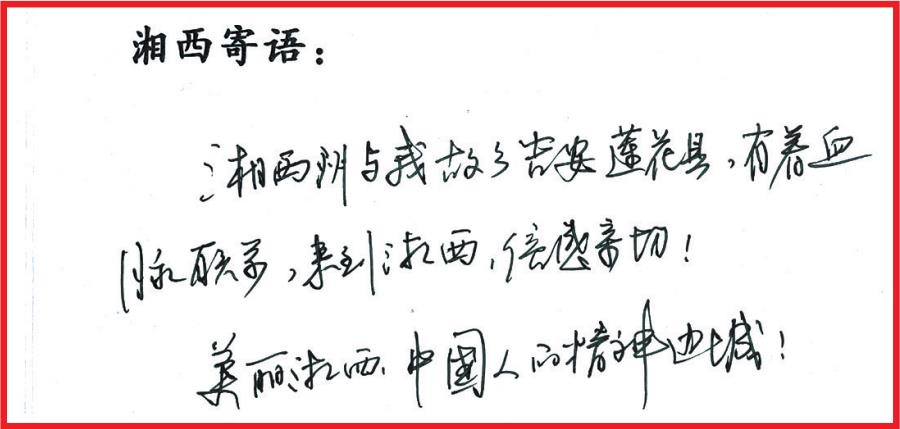 湘西寄语：
湘西州与我故乡吉安莲花县，有着血
脉联系，来到湘西，倍感亲切！
美丽湘西，中國人的精神边城！